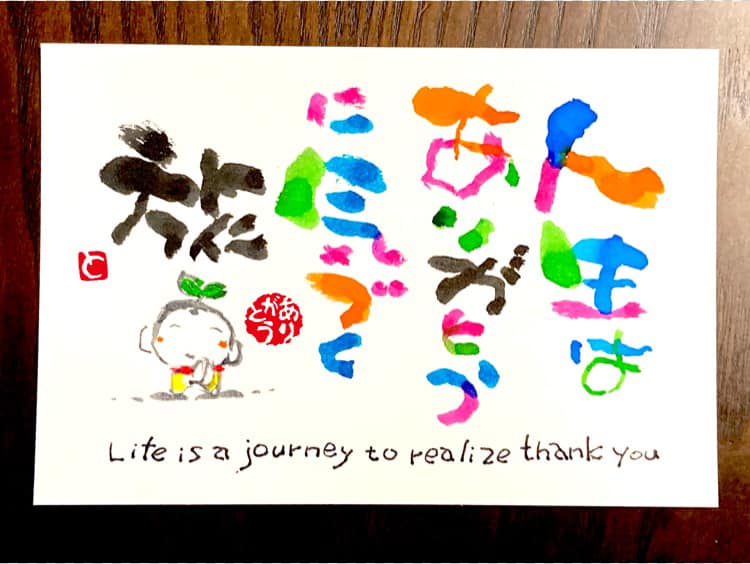 人生は
ありがとう
に気づく
旅
と
ありがとう
Life is a journey to realize thank you